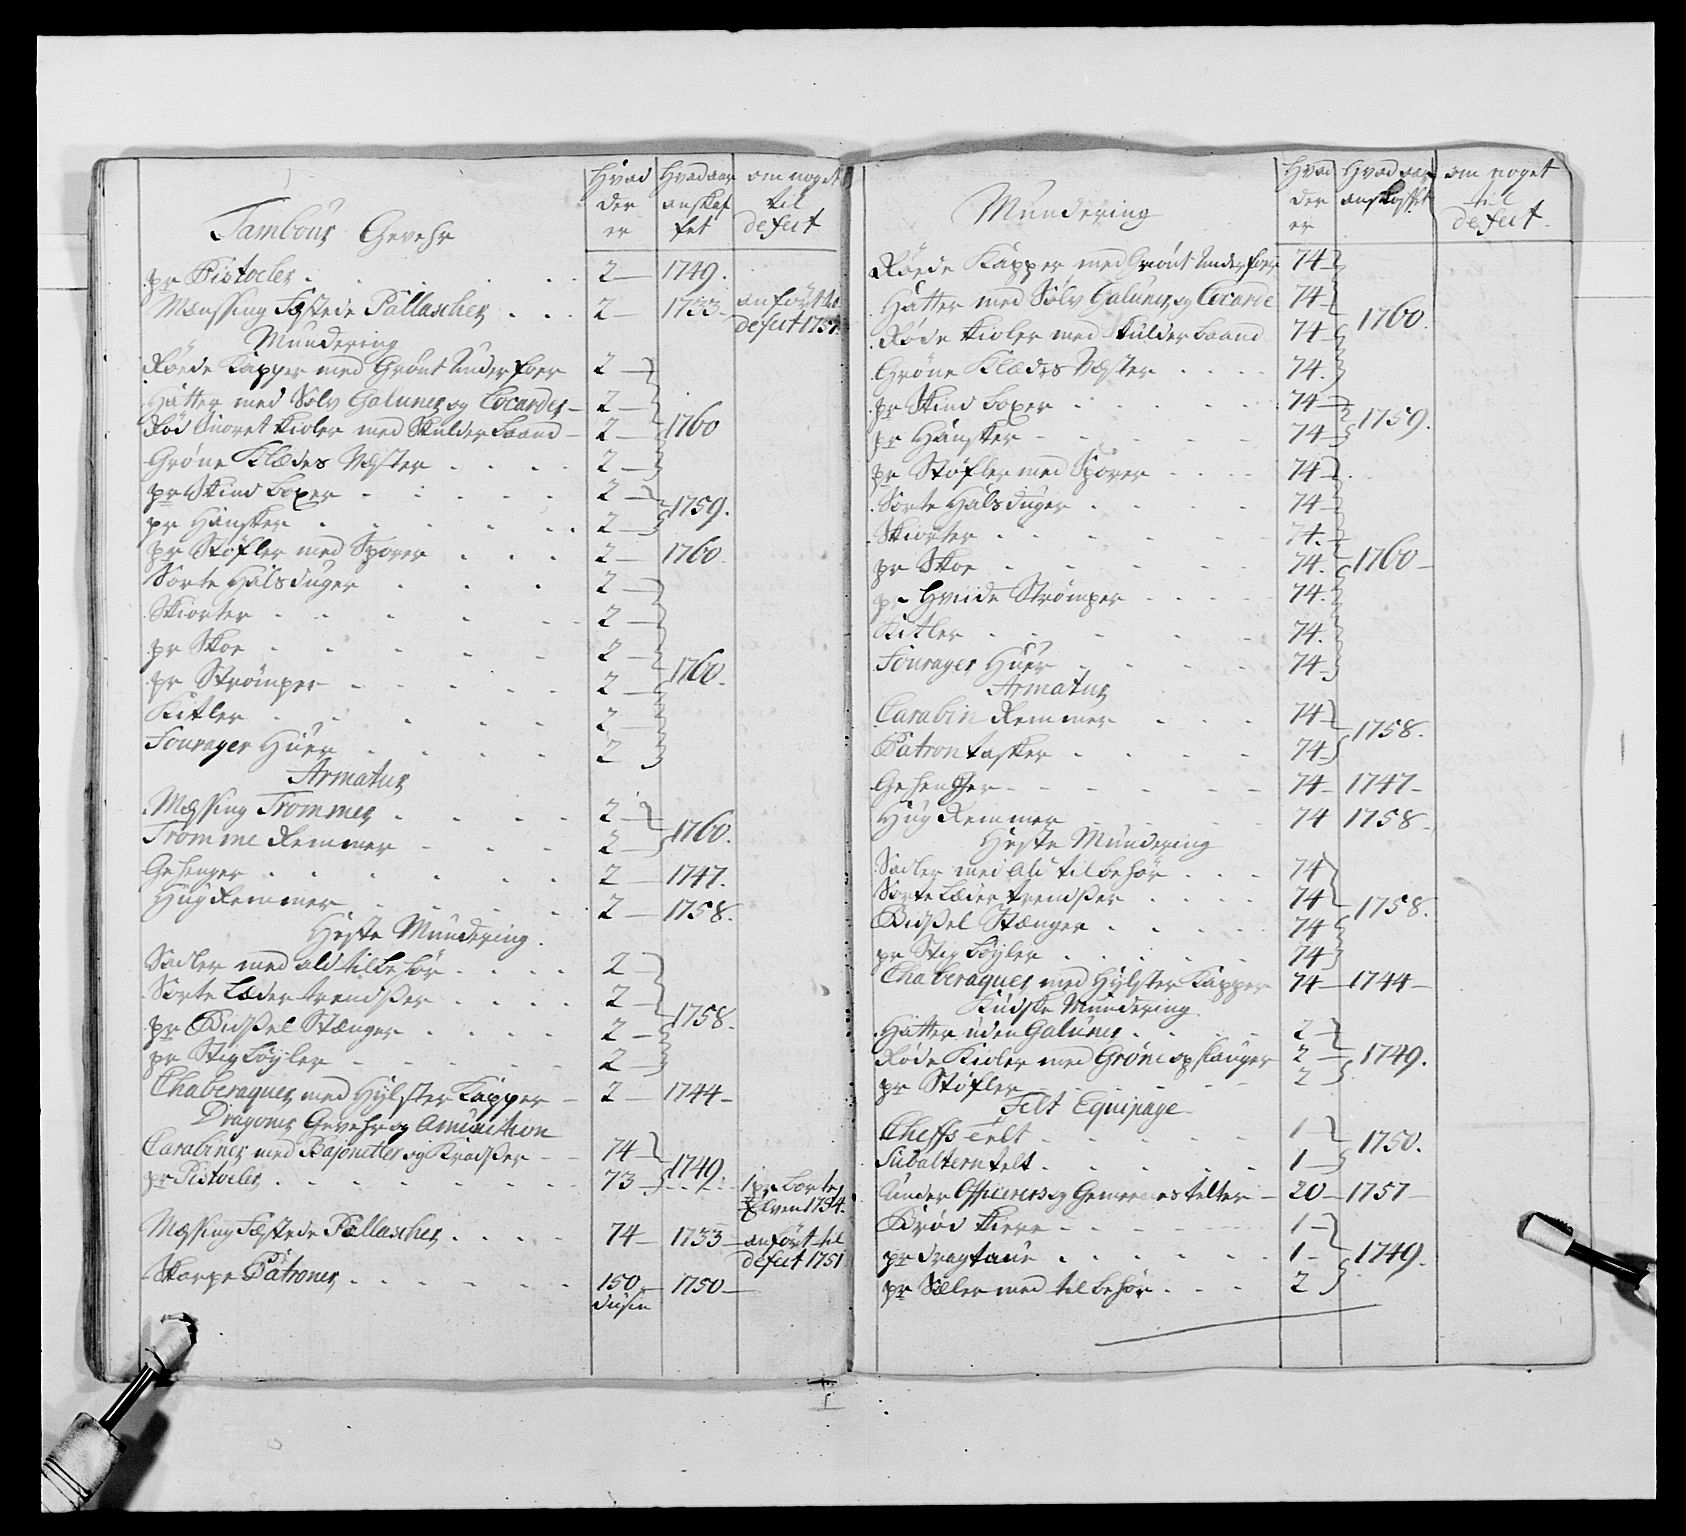 Tambour Gevehr
Hvad der er
Hvad aar anskaffet
om noget til defect
pr Pistoeler . . . 2 — 1749.
Mæssing Fæstede Pallascher . . . 2 — 1733 — anført til defect 1751
Mundering
Røede Kapper med Grønt Underfoer 2 —
Hatter med Sølv Galuner og Cocarder — 2 —
Rød Snoret Kioler med Skulder baand — 2 — 1760
Grøne Klædes Væster . . . . 2 —
pr Skind boxer . . . . 2 —
pr Hansker . . . . 2 — 1759.
pr Støfler med Sporer . . . 2 — 1760
Sorte Halsduger . . . 2 —
Skiorter . . . . 2 —
pr Skoe . . . . 2 —
pr Strømper . . . . 2 — 1760.
Kitler . . . . 2 —
Fourager Huer . . . . 2
Armatur
Mæssing Trommer . . . . 2 —
Tromme Remmer . . . 2 — 1760.
Gehenger . . . . 2 — 1747.
Hug Remmer . . . . 2 — 1758.
Heste Mundering.
Sadler med ald tilbehør . . . . 2
Sorte Læder trendsser . . . . 2 —
pr Bidssel Stænger . . . . 2 — 1758.
pr Stigbøyler . . . . 2 —
Chaberaquer med Hylster Kapper — 2 — 1744 —
Dragoner Gevehr og Amunition
Carabiner med Bajonetter og Kradsser — 74 —
pr Pistoeler . . . . 73 — 1749. 1 pr borte Elven 1754.
Mæssing Fæstede Pallascher . . . . 74 — 1733 — anført til defect 1751
Skarpe Patroner . . . . 150 dusin — 1750 —
Mundering
Hvad der er
Hvad aar anskaffet
om noget til defect
Røede Kapper med Grønt Underfoer 74 —
Hatter med Sølv Galuner og Cocarde 74 —
Røde Kioler med Skulder baand 74 — 1760.
Grøne Klædes Væster . . . . 74.
pr Skind boxer . . . . 74 —
pr Hansker . . . . 74 — 1759.
pr Støfler med Sporer . . . . 74 —
Sorte Halsduger . . . . 74 —
Skiorter . . . . 74. —
pr Skoe . . . . 74. 1760 —
pr Hviide Strømper . . . . 74.
Kitler . . . . 74.
Fourager Huer . . . . 74 —
Armatur
Carabin Remmer . . . 74 —
Patrontasker . . . . 74 — 1758.
Gehenger . . . . 74 — 1747 —
Hug Remmer 74 1758 —
Heste Mundering
Sadler med ald tilbehør . . . 74
Sorte Læder trendsser . . . . 74
Bidssel Stænger . . . . 74 1758.
pr Stigbøyler . . . . 74
Chaberaquer med Hylster Kapper 74 — 1744 —
Kudske Mundering.
Hatter uden Galuner . . . . 2 —
Røde Kioler med Grøne opslauger 2 — 1749.
pr Støfler . . . . 2
Felt Equipage
Cheffs Telt . . . . 1
Subaltern telt . . . . 1 — 1750.
Under Officerers og Gemeenes telter — 20 — 1757 —
Brød Kiere . . . . 1 —
pr dragtaue . . . . 1 — 1749.
pr Sæler med tilbehør . . . 2